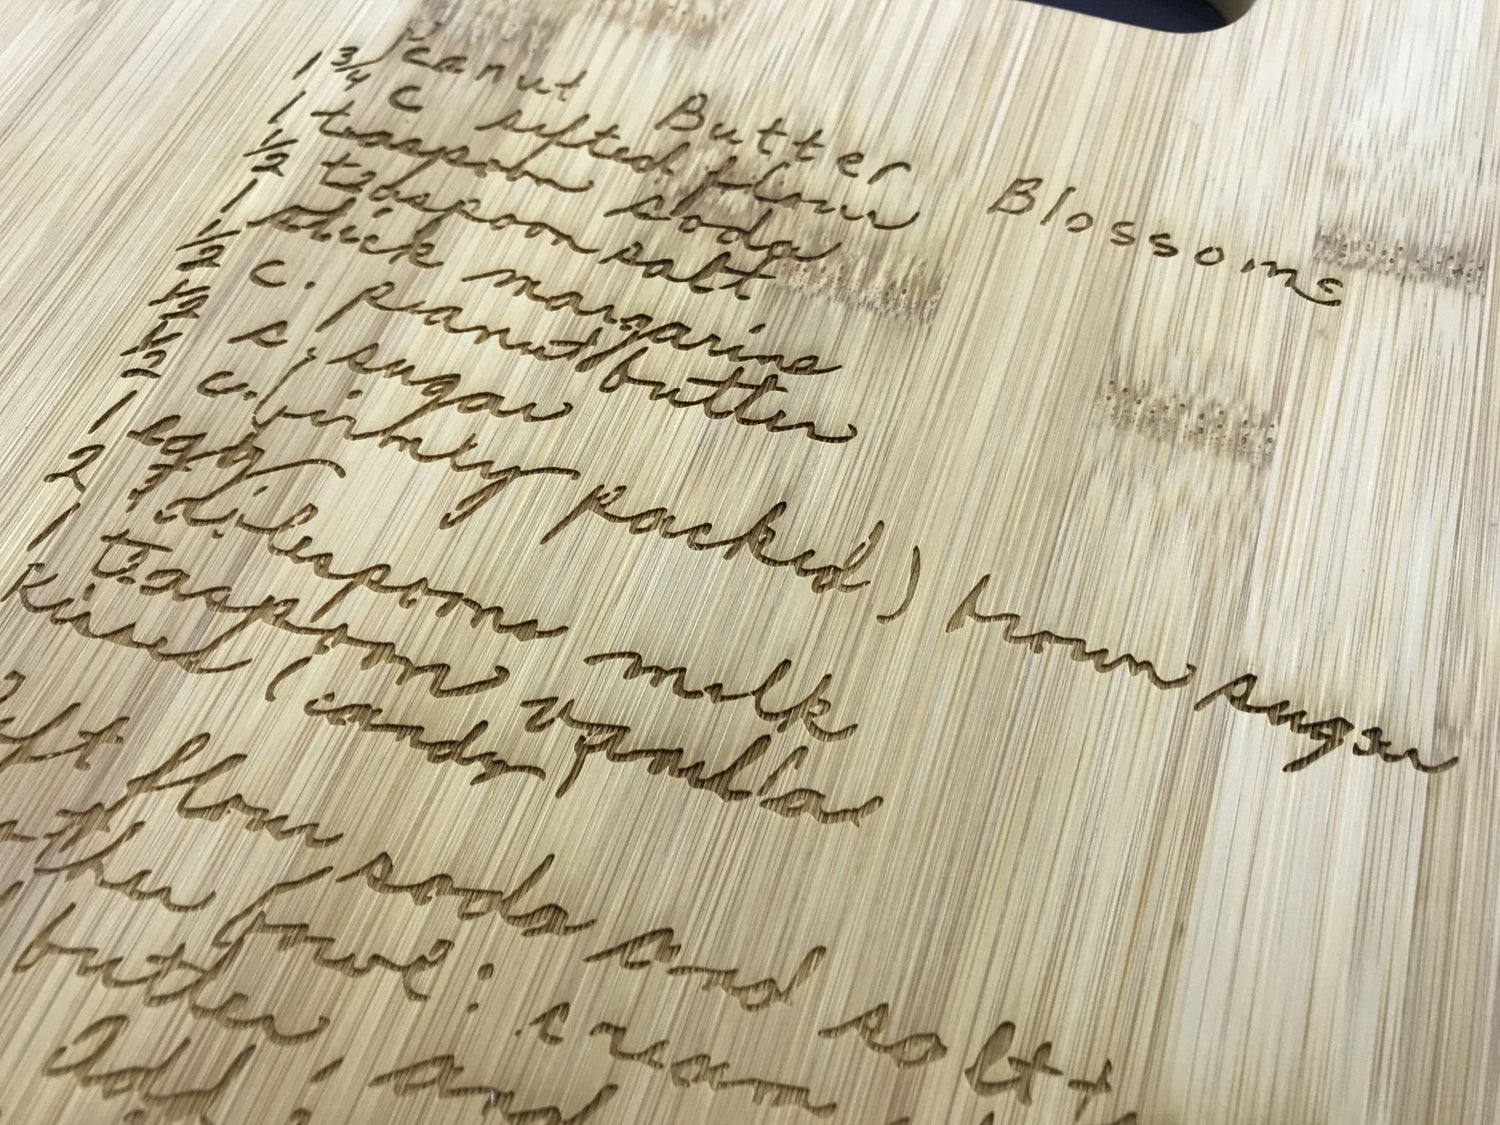 Peanut Butter Blossoms
1 3/4 C sifted flour
1 teaspoon soda
1/2 teaspoon salt
1 stick margarine
1/2 c. peanut butter
1/2 c. sugar
1/2 c. firmly packed) brown sugar
1 egg
2 tablespoons milk
1 teaspoon vanilla
kisses (candy)
flour soda and salt
bowl: cream
butter, and
Add